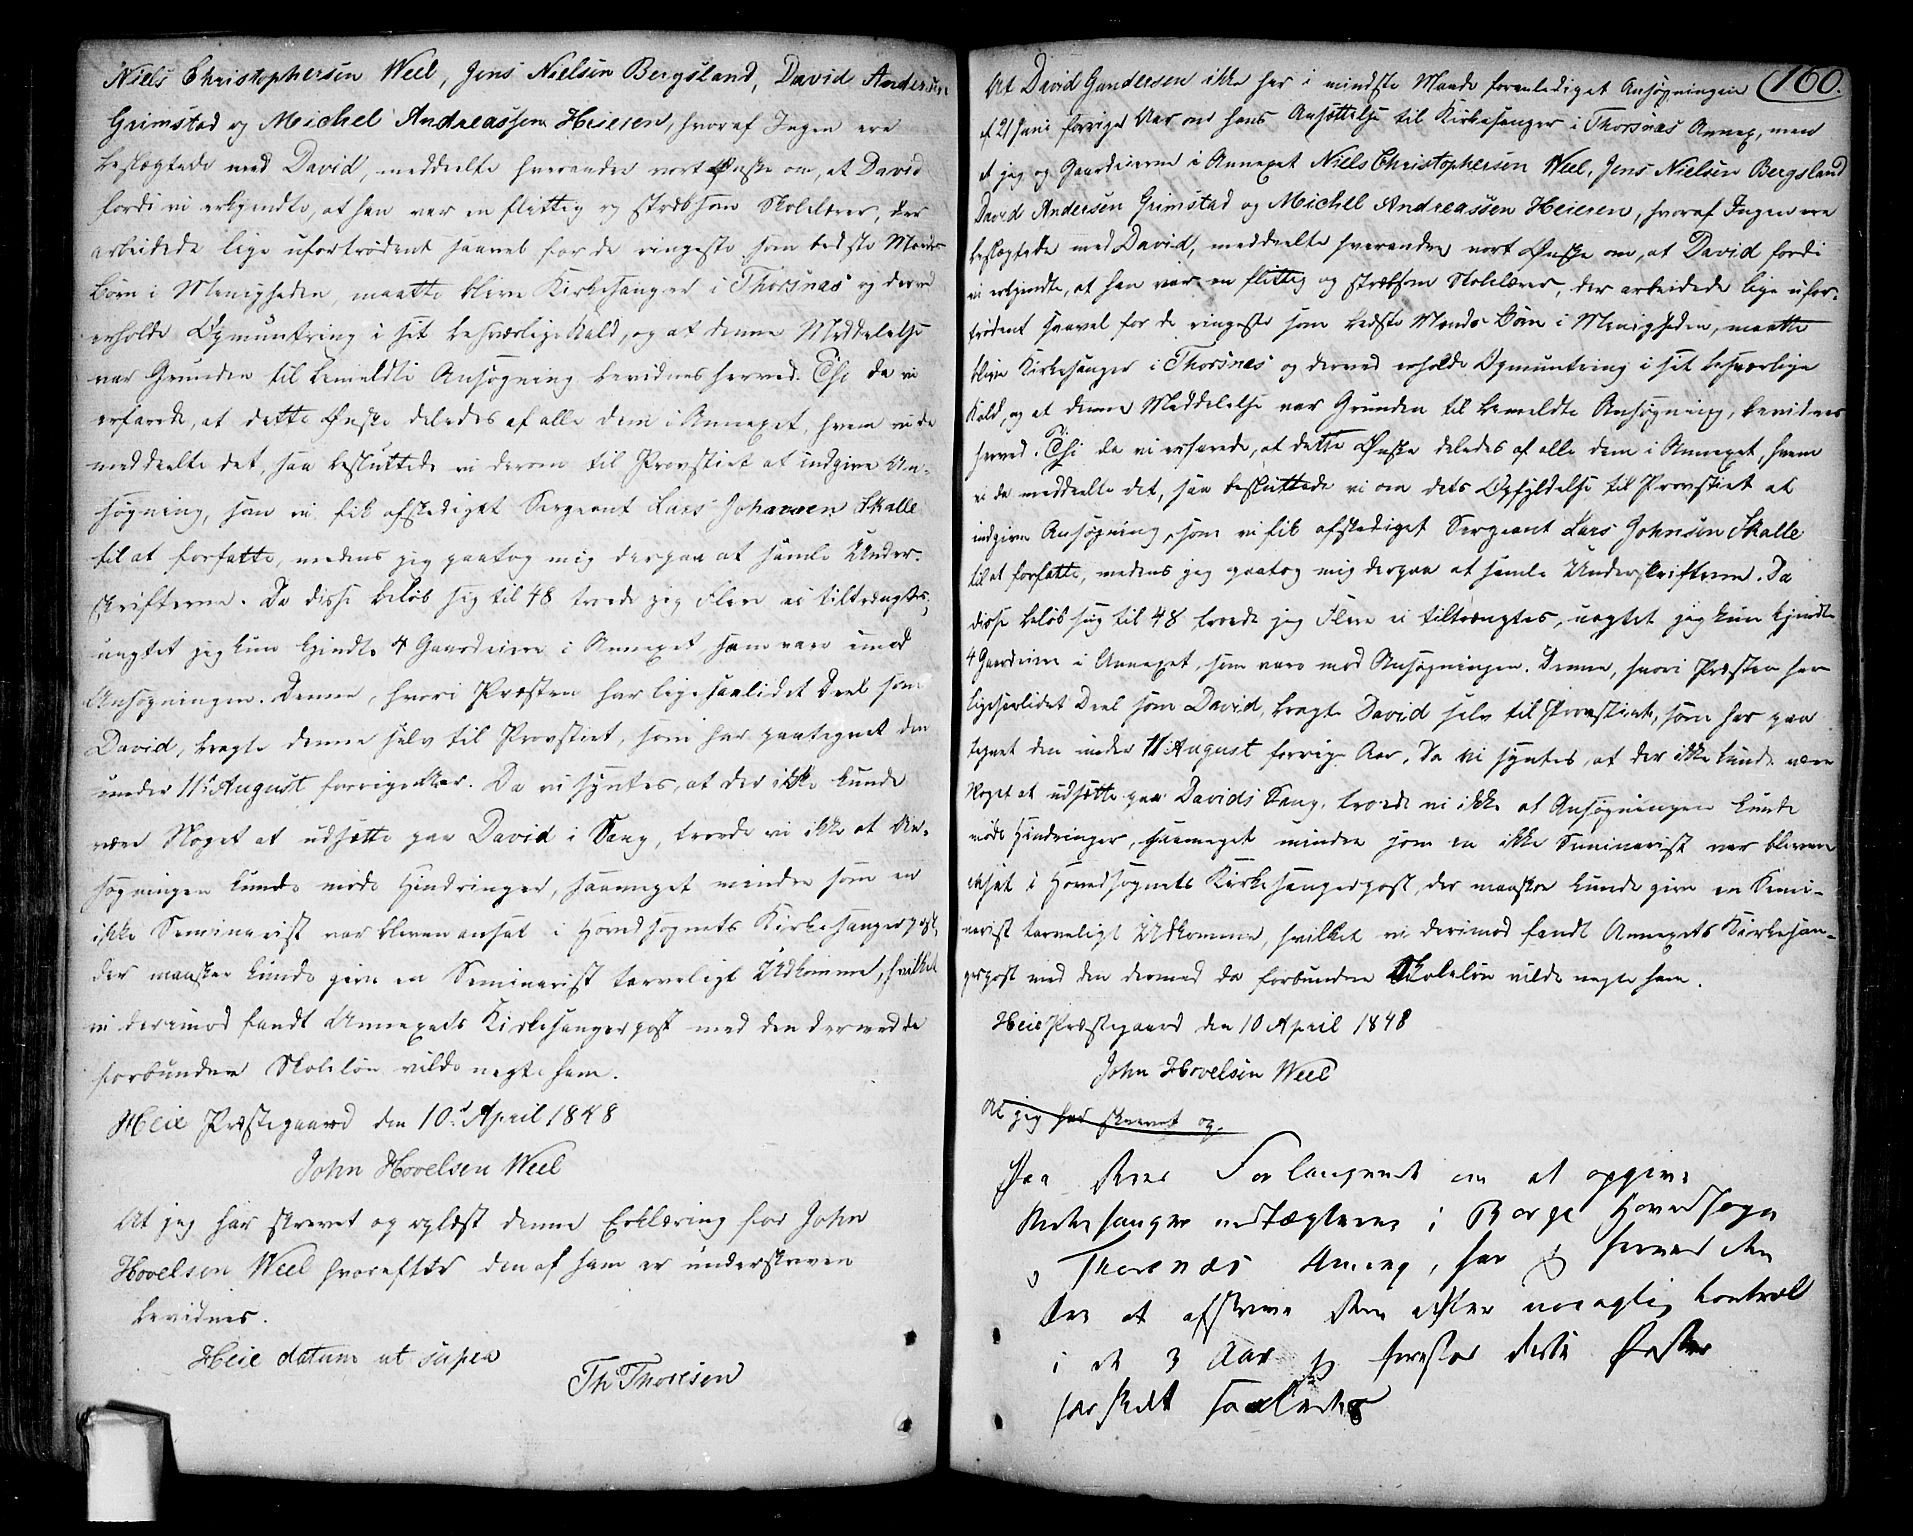 Niels Christophersen Weel, Jens Nielsen Bergsland, David Andersen
Grimstad og Michel Andreassen Heieren, hvoraf Ingen ere
beslægtede med David, meddeelte hverandre vort Ønske om, at David
fordi vi erkjendte, at han var en flittig og stræbsom Skolelærer, der
arbeidede lige ufortrødent saavel for de ringeste som bedste Mænds
Børn i Menigheden, maatte blive Kirkesanger i Thorsnæs og derved
erholde Opmuntring i sit besværlige Kald, og at denne Meddelelse
var Grunden til bemeldte Ansøgning bevidnes herved. Thi da vi
erfarede, at dette Ønske deledes af alle dem i Annexet, hvem vi da
meddeelte det, saa besluttede vi derom til Provstiet at indgive An-
søgning, som vi fik afskediget Sergeant Lars Johansen Skalle
til at forfatte, medens jeg paatog mig derpaa at samle Under-
skrifterne. Da disse beløb sig til 48 troede jeg Flere ei tiltrængtes,
uagtet jeg kun kjendte 4 Gaardeiere i Annexet som vare imod
Ansøgningen. Denne, hvori Præsten har ligesaalidet Deel som
David, bragte denne selv til Provstiet, som har paategnet den
under 11te August forrige Aar. Da vi syntes, at der ikke kunde
være Noget at udsætte paa David i Sang, troede vi ikke at An-
søgningen kunde møde Hindringer, saameget mindre som en
ikke Seminarist var bleven ansat i Hovedsognets Kirkesangerpost,
der maaskee kunde give en Seminarist tarveligt Udkomme, hvilket
vi derimod fandt Annexets Kirkesangerpost med den dermed da
forbundne Skoleløn vilde negte ham.
Heie Præstegaard den 10d April 1848
John Hovelsen Weel
At jeg har skrevet og oplæst denne Erklæring for John
Hovelsen Weel hvorefter den af ham er underskreven
bevidnes.
Heie datum ut supra
Th Thoresen
160.
At David Gundersen ikke har i mindste Maade foranlediget Ansøgningen
af 21 Juni forrige Aar om hans Ansættelse til Kirkesanger i Thorsnæs Annex, men
at jeg og Gaardeierne i Annexet Niels Christophersen Weel, Jens Nielsen Bergsland
David Andersen Grimstad og Michel Andreassen Heieren, hvoraf Ingen ere
beslægtede med David, meddeelte hverandre vort Ønske om, at David fordi
vi erkjendte, at han var en flittig og stræbsom Skolelærer, der arbeidede lige ufor-
trødent saavel for de ringeste som bedste Mænds Børn i Menigheden, maatte
blive Kirkesanger i Thorsnæs og derved erholde Opmuntring i sit besværlige
Kald, og at denne Meddelelse var Grunden til bemeldte Ansøgning, bevidnes
herved. Thi da vi erfarede, at dette Ønske deledes af alle dem i Annexet, hvem
vi da meddeelte det, saa besluttede vi om dets Opfyldelse til Provstiet at
indgive Ansøgning, som vi fik afskediget Sergeant Lars Johnsen Skalle
til at forfatte, medens jeg paatog mig derpaa at samle Underskrifterne. Da
disse beløb sig til 48 troede jeg Flere ei tiltrængtes, uagtet jeg kun kjendte
4 Gaardeiere i Annexet, som vare mod Ansøgningen. Denne, hvori Præsten har
ligesaalidet Deel som David, bragte David selv til Provstiet, som har paa
tegnet den under 11 August forrige Aar. Da vi syntes, at der ikke kunde være
Noget at udsætte paa Davids Sang, troede vi ikke at Ansøgningen kunde
møde Hindringer, saameget mindre som en ikke Seminarist var bleven
ansat i Hovedsognets Kirkesangerpost, der maaskee kunde give en Semi-
narist tarveligt Udkomme, hvilket vi derimod fandt Annexets Kirkesan-
gerpost med den dermed da forbundne Skoleløn vilde negte ham.
Heie Præstegaard den 10 April 1848
John Hovelsen Weel
At jeg har skrevet og
Paa Deres Forlangende om at opgive
Kirkesanger indtægterne i Borge Hovedsogn
og Thorsnæs Annex, har jeg herved den
Ære at afskrive dem efter nøiagtig Control
i de 3 Aar jeg forestod disse Poster
særskilt saaledes